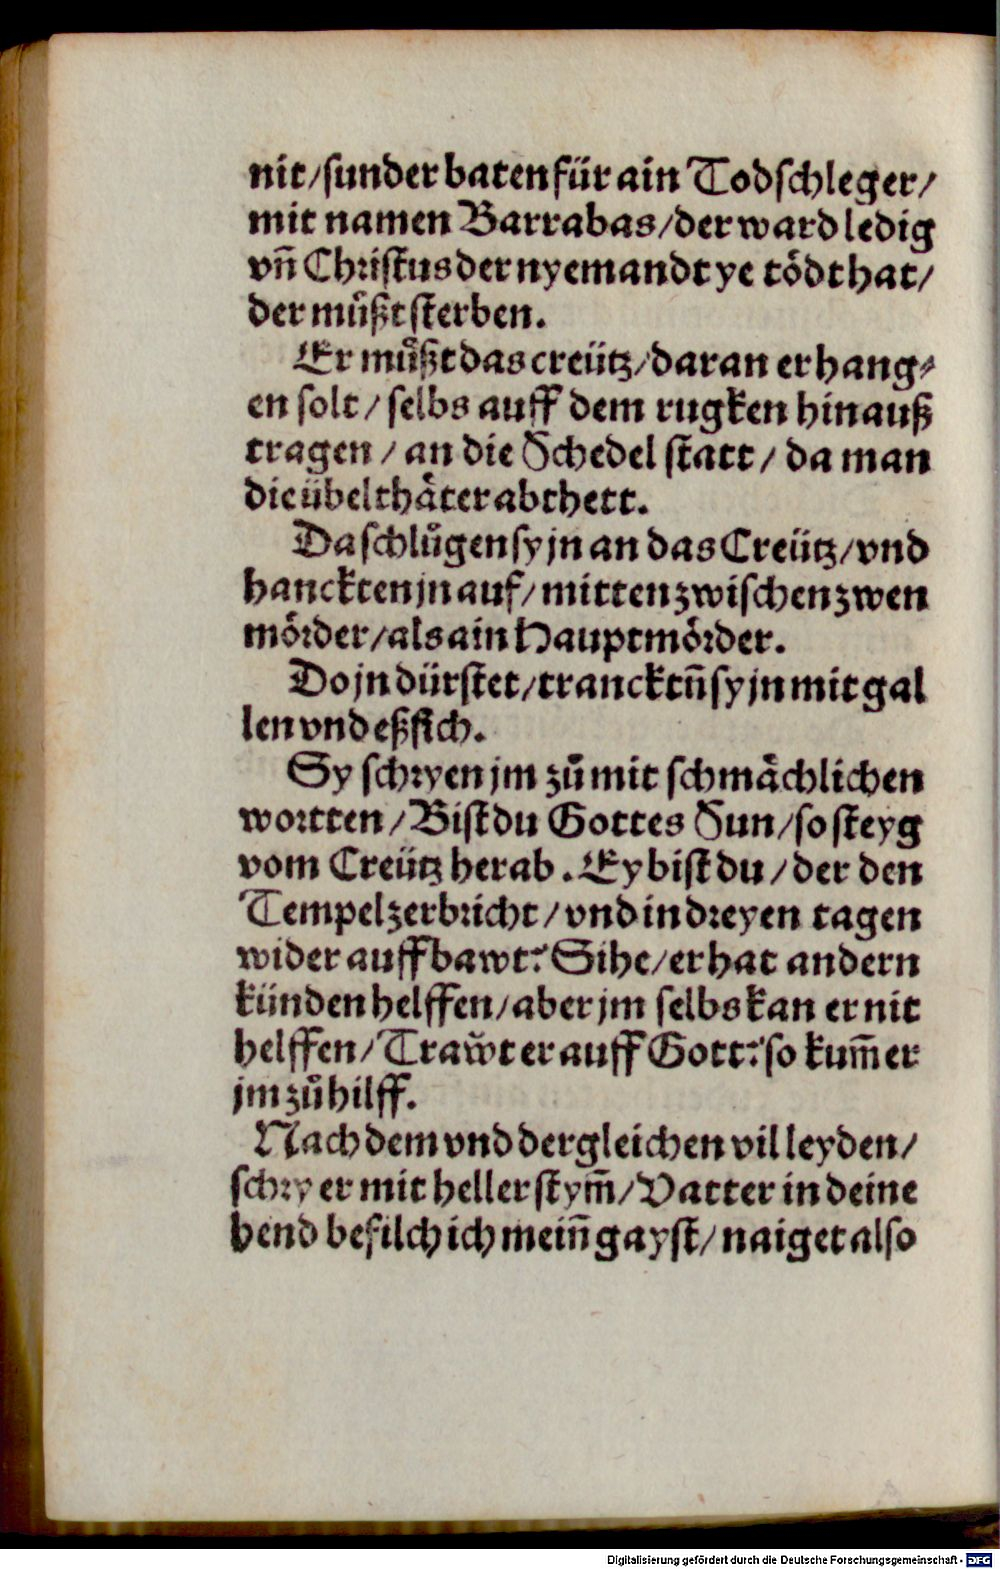 nit/sunder baten für ain Todschleger/
mit namen Barrabas/der ward ledig
vñ Christus der nyemandt ye tödt hat/
der můßt sterben.
Er můßt das creütz/daran er hang⸗
en solt/selbs auff dem rugken hinauß
tragen/an die Schedel statt/da man
die übelthäter abthett.
Da schlůgen sy jn an das Creütz/vnd
hanckten jn auf/mitten zwischen zwen
mörder/als ain Hauptmörder.
Do jn dürstet/trancktñ sy jn mit gal
len vnd eßsich.
Sy schryen jm zů mit schmächlichen
wortten/Bist du Gottes Sun/so steyg
vom Creütz herab. Ey bist du/der den
Tempel zerbricht/vnd in dreyen tagen
wider auffbawt? Sihe/er hat andern
künden helffen/aber jm selbs kan er nit
helffen/Traẘt er auff Gott? so kum̃ er
jm zů hilff.
Nach dem vnd dergleichen vil leyden/
schry er mit heller stym̃/Vatter in deine
hend befilch ich meiñ gayst/naiget also
Digitalisierung gefördert durch die Deutsche Forschungsgemeinschaft - DFG